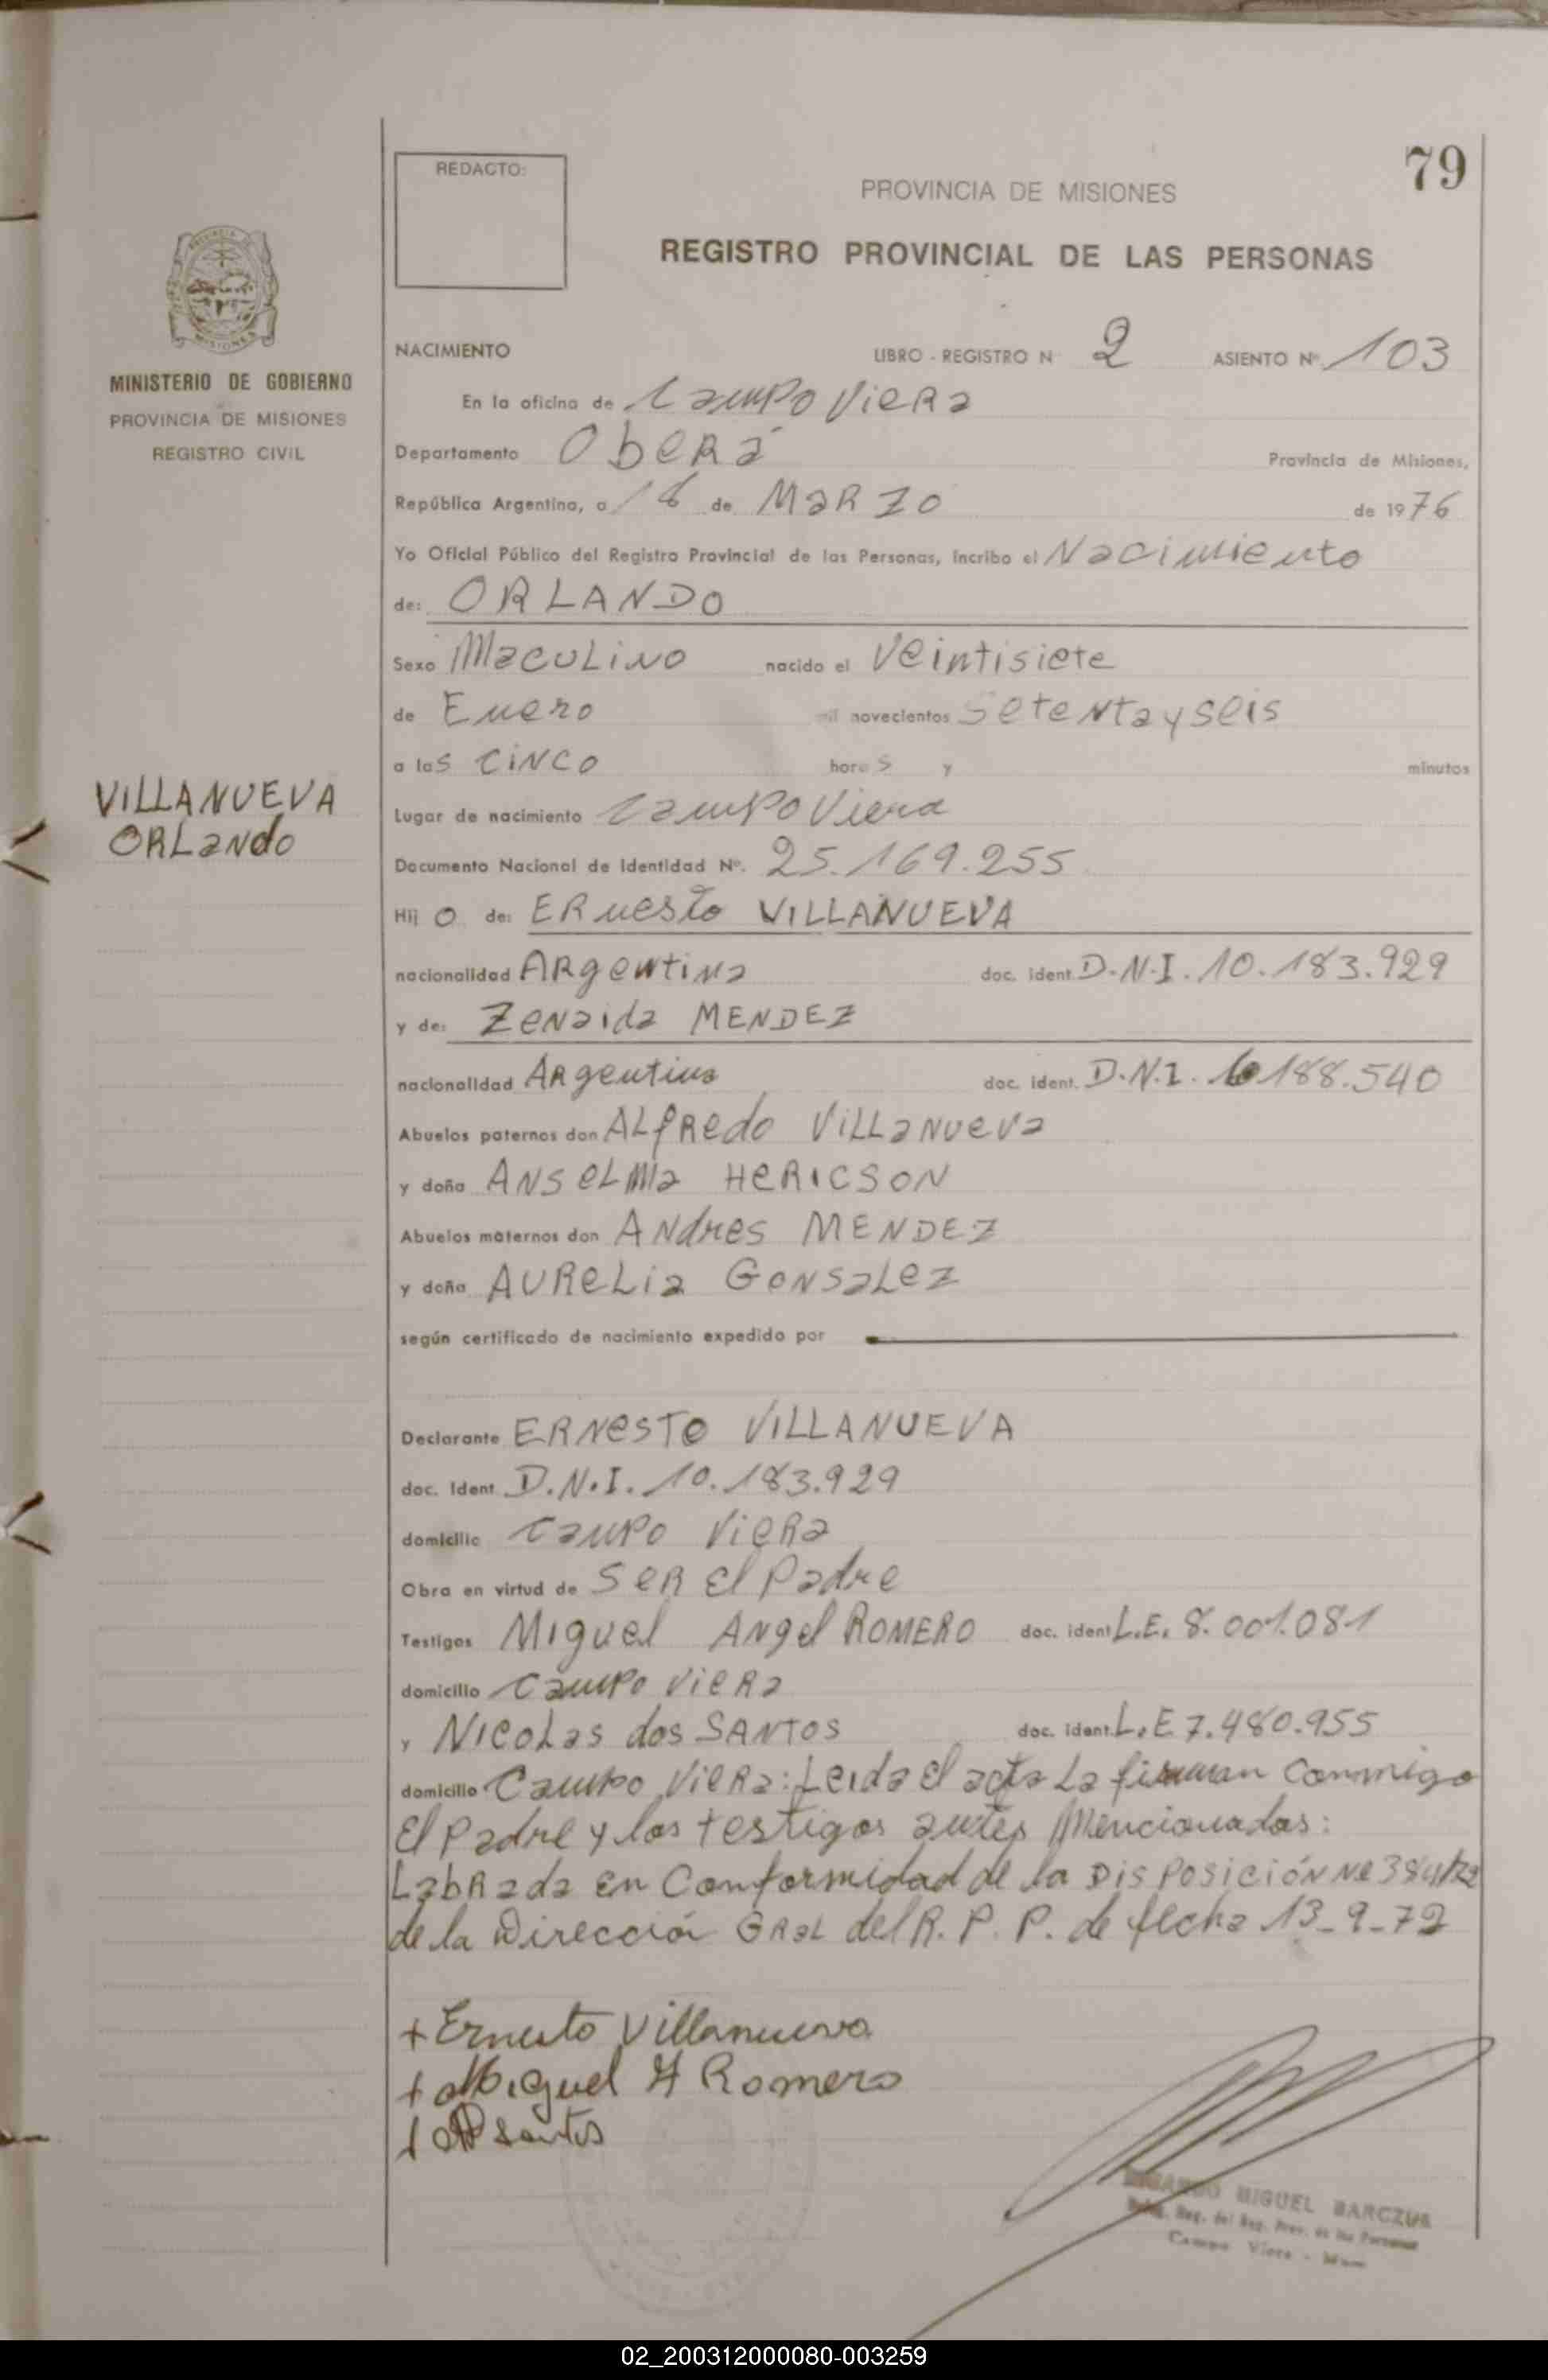 79
REDACTO:
PROVINCIA DE MISIONES
REGISTRO PROVINCIAL DE LAS PERSONAS
MINISTERIO DE GOBIERNO
PROVINCIA DE MISIONES
REGISTRO CIVIL
VILLANUEVA
ORLando
NACIMIENTO LIBRO - REGISTRO N 2 ASIENTO Nº 103
En la oficina de Campo Viera
Departamento Oberá Provincia de Misiones,
República Argentina, a 18 de MARZO de 1976
Yo Oficial Público del Registro Provincial de las Personas, incribo el Nacimiento
de: ORLANDO
Sexo MacULiNO nacido el Veintisiete
de Enero mil novecientos Setenta y seis
a las CiNCO horas y minutos
Lugar de nacimiento Campo Viera
Documento Nacional de Identidad Nº. 25.169.255
Hij o de: ERnesto VILLANUEVA
nacionalidad ARgentina doc. ident. D.N.I. 10.183.929
y de: Zenaida MENDEZ
nacionalidad ARgentina doc. ident. D.N.I. 188.540
Abuelos paternos don ALfRedo ViLLanueva
y doña ANSeLMa HeRICSON
Abuelos maternos don ANdres MENDEZ
y doña AURELia GonsaLez
según certificado de nacimiento expedido por
Declarante ERNesTo ViLLANUEVA
doc. Ident D.N.I. 10.183.929
domicilio Campo Viera
Obra en virtud de SeR El Padre
Testigos Miguel Angel ROMERO doc. ident L.E. 8.001.081
domicilio Campo Viera
y NICOLas dos SANTOS doc. ident. L.E 7.480.955
domicilio Campo Viera: Leida el acta La firman Conmigo
El Padre y los testigos antes Mencionados:
LabRada en Conformidad de la DisPosición Nº 384/72
de la Dirección GRaL del R. P. P. de fecha 13-9-72
+ Ernesto Villanueva
+ Miguel A Romero
+ santos
MIGUEL BARCZUK
Reg. del Reg. Prov. de las Personas
Campo Viera -
02_200312000080-003259